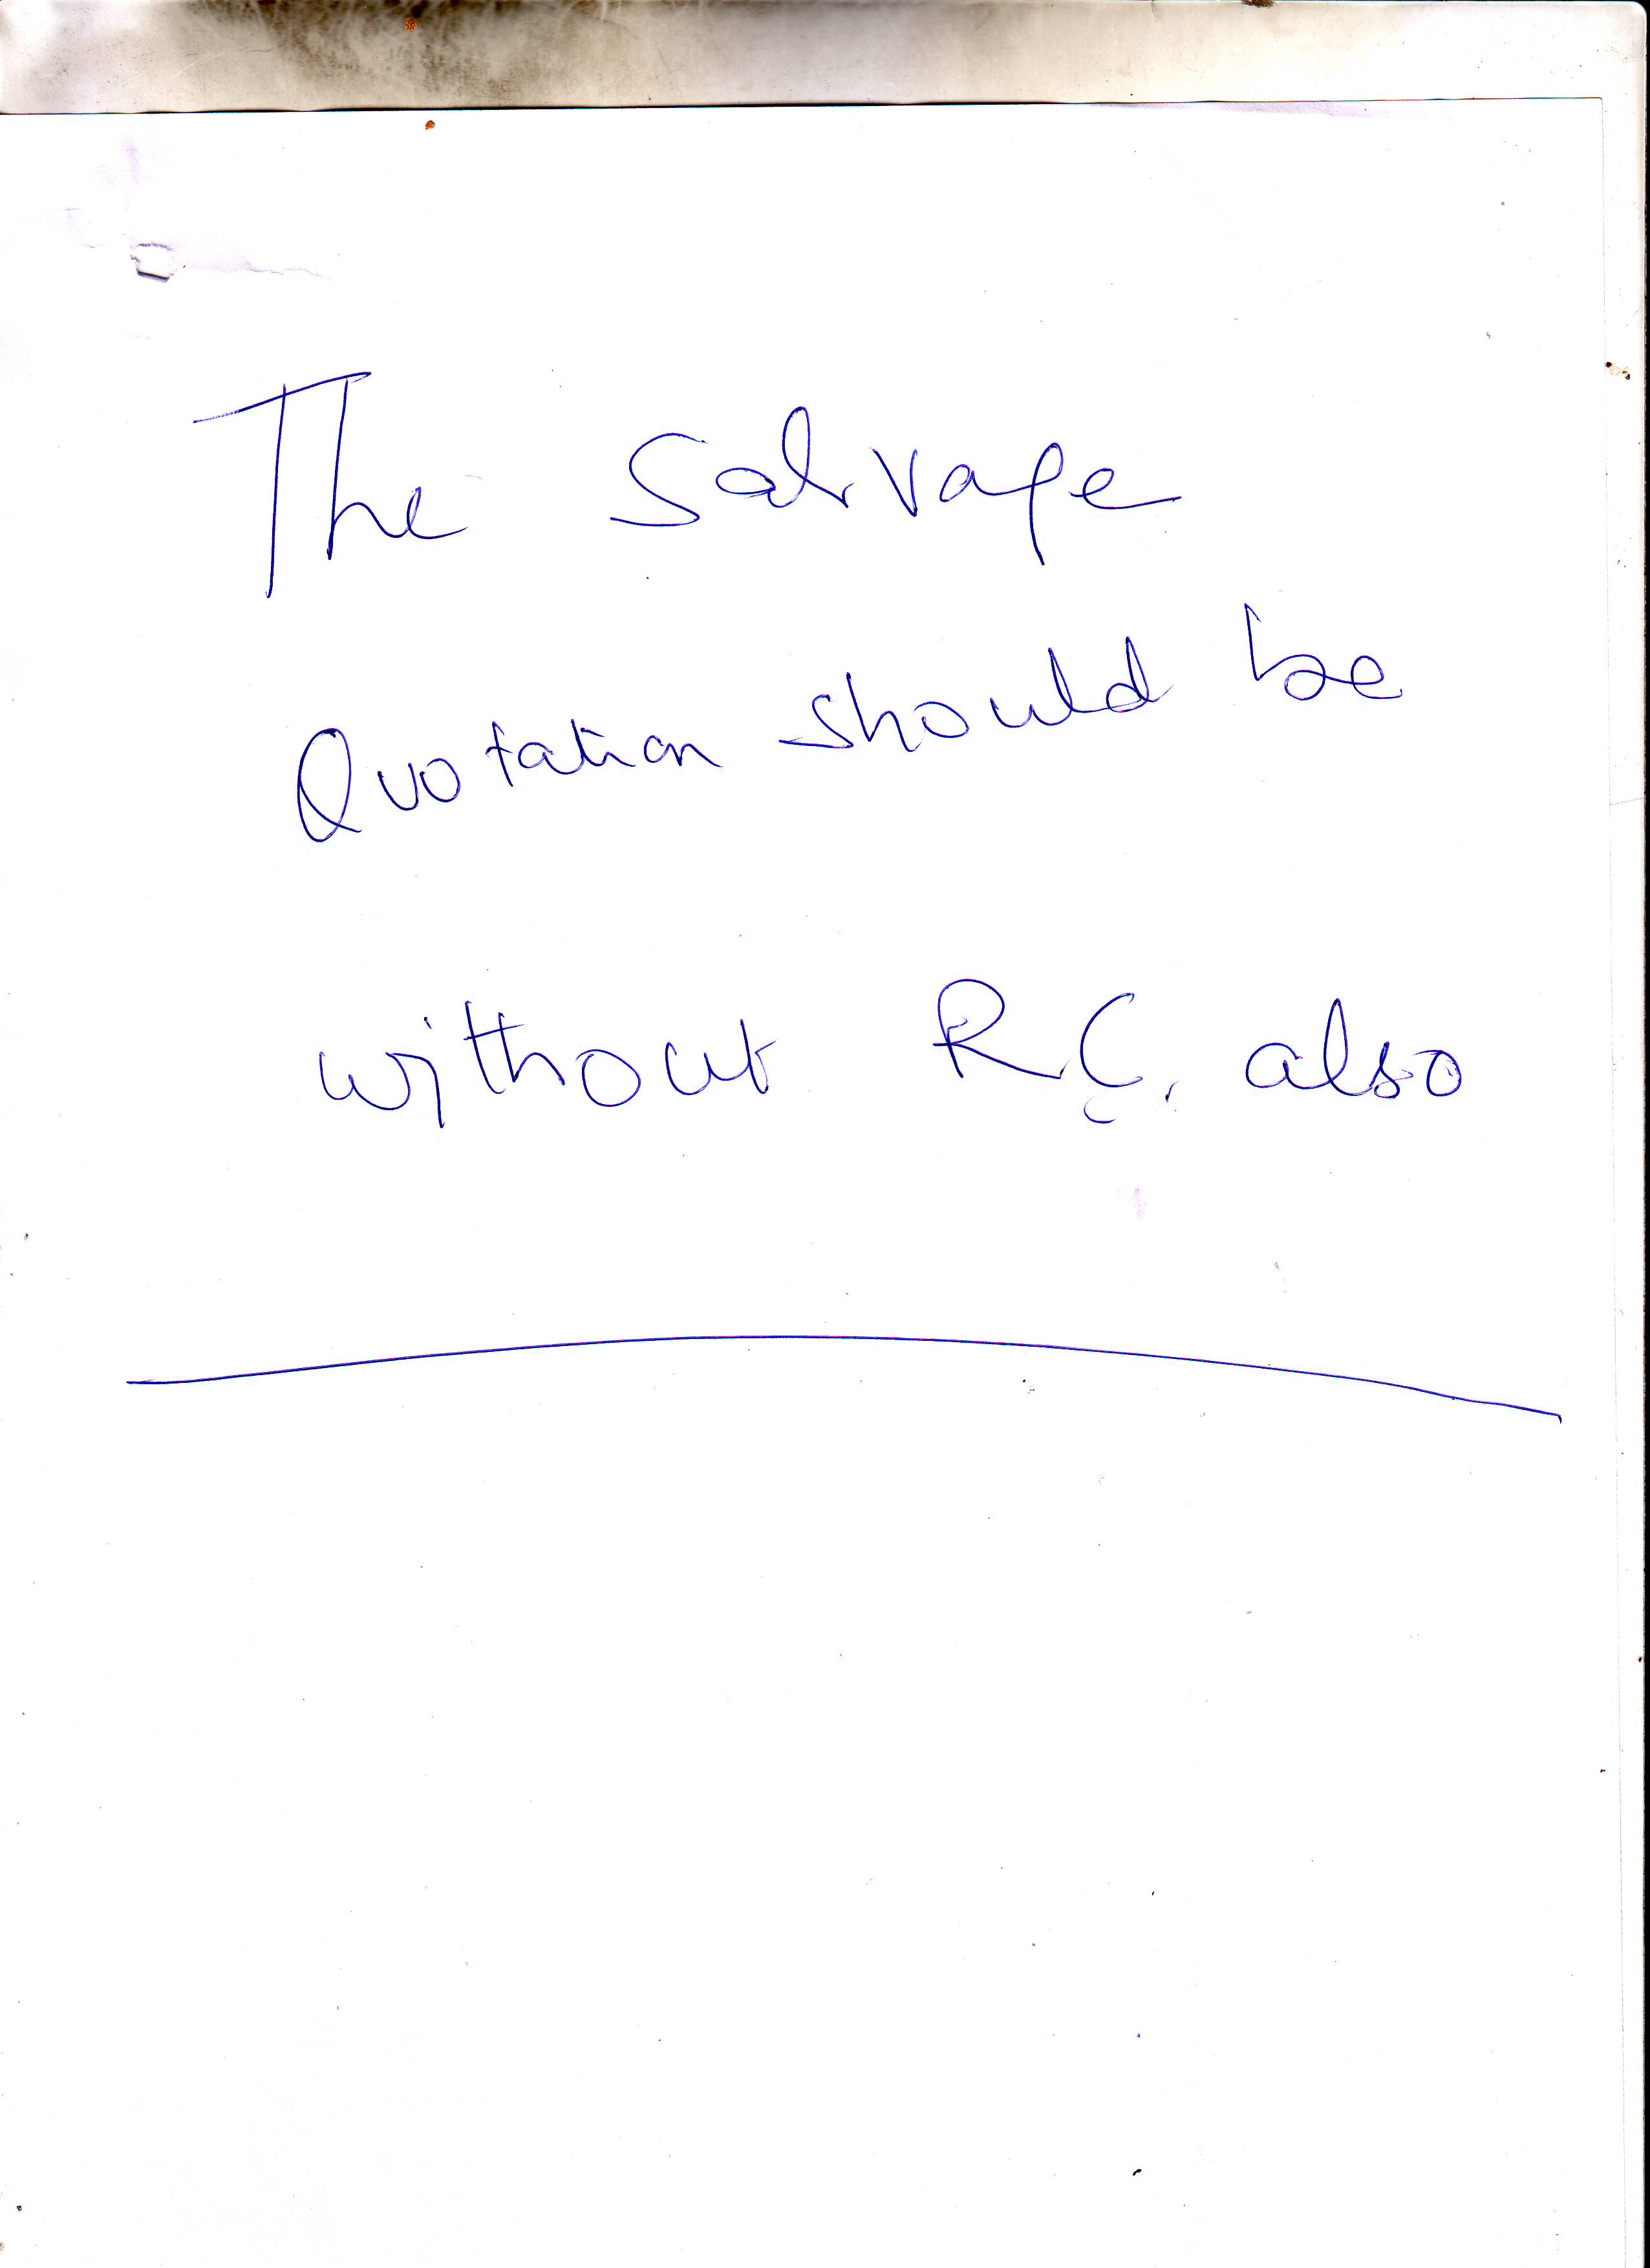 The Salvage
Quotation should be
without R.C. also